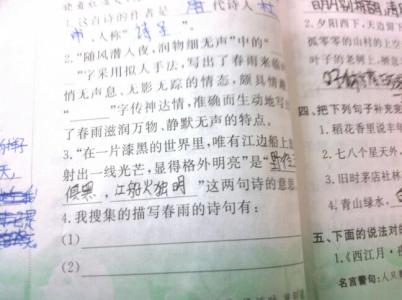 1.这首诗的作者是 唐 代诗人 杜
甫,人称“诗圣”。
2.“随风潜入夜,润物细无声”中的“
”字采用拟人手法,写出了春雨来临时
悄无声息、无影无踪的情态,颇具情趣
“ ”字传神达情,准确而生动地写出
了春雨滋润万物、静默无声的特点。
3.“在一片漆黑的世界里,唯有江边船上
射出一线光芒,显得格外明亮”是“野径云
俱黑,江船火独明”这两句诗的意思
4.我搜集的描写春雨的诗句有:
(1)
(2)
2.夕阳西下,天边留下
孤零零的山村的上空
叶子的老树上,
四、把下列句子补充完
1.稻花香里说丰年
2.七八个星天外,
3.旧时茅店社林
4.青山绿水,
五、下面的说法对的
1.《西江月·夜
名言警句:人只